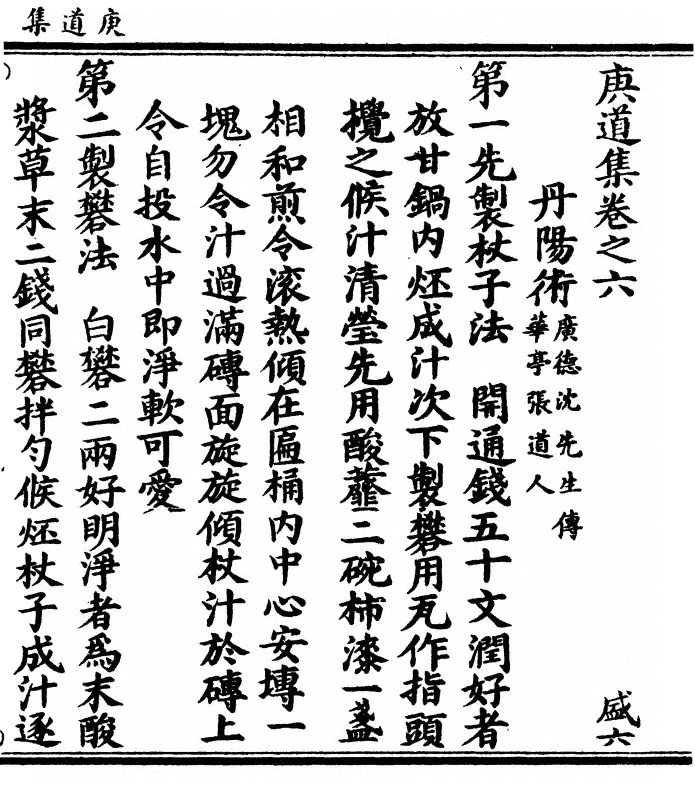 庚道集
庚道集卷之六
盛六
丹陽術廣德沈先生傳
華亭張道人
第一先製杖子法　開通錢五十文潤好者
放甘鍋内烴成汁次下製礬用瓦作指頭
攪之候汁清瑩先用酸虀二碗柿漆一盞
相和煎令滚熱傾在匾桶内中心安塼一
塊勿令汁過滿磚面旋旋傾杖汁於磚上
令自投水中即淨軟可愛
第二製礬法　白礬二兩好明淨者爲末酸
漿草末二錢同礬拌勻候烴杖子成汁逐